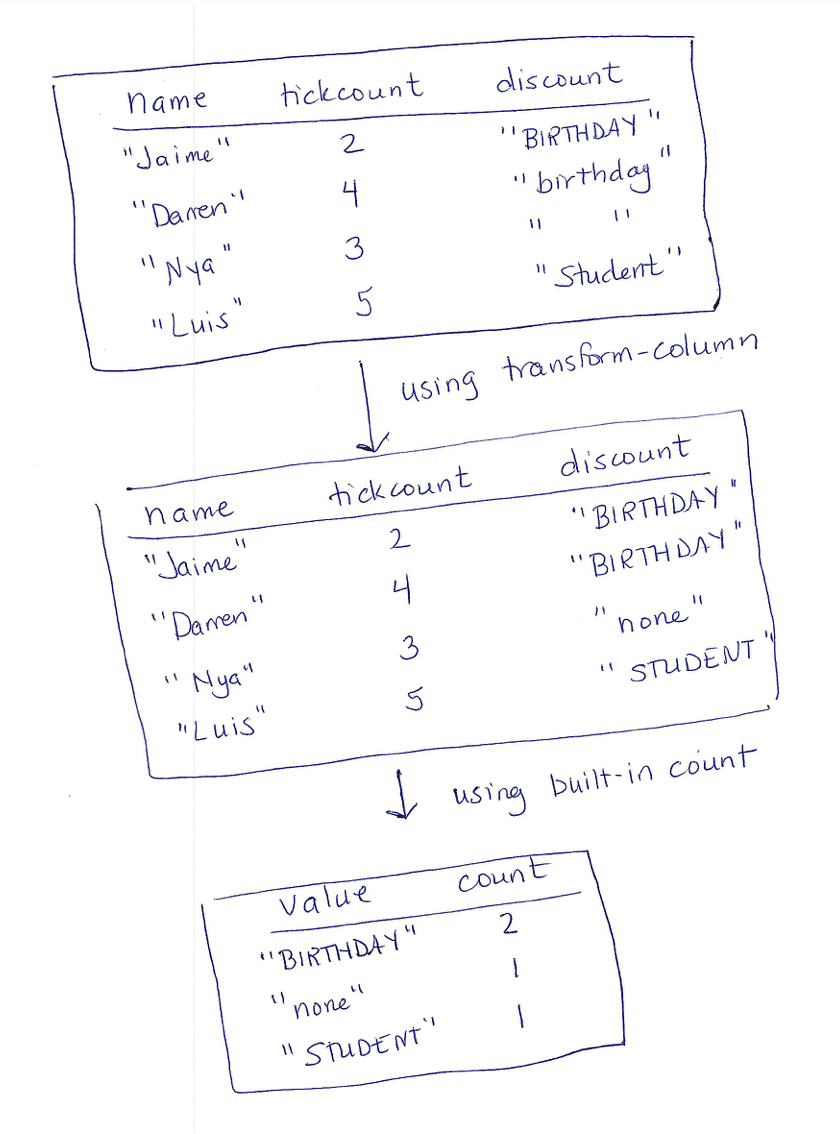 name tickcount discount
"Jaime" 2 "BIRTHDAY"
"Darren" 4 "birthday"
"Nya" 3 " "
"Luis" 5 "Student"
using transform-column
name tickcount discount
"Jaime" 2 "BIRTHDAY"
"Darren" 4 "BIRTHDAY"
"Nya" 3 "none"
"Luis" 5 "STUDENT"
using built-in count
value count
"BIRTHDAY" 2
"none" 1
"STUDENT" 1